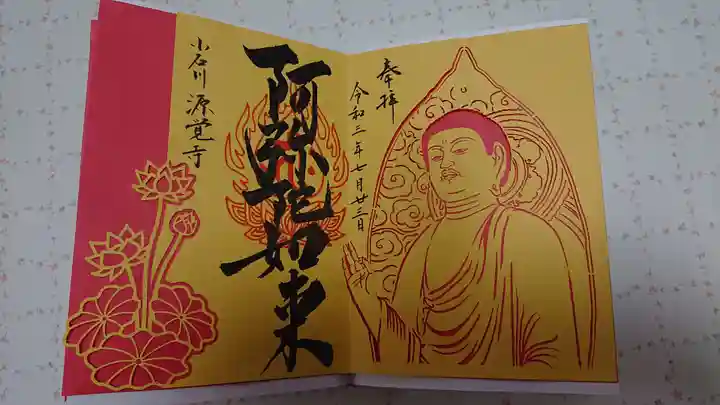 奉拝
令和三年七月廿三日
阿弥陀如来
小石川 源覚寺